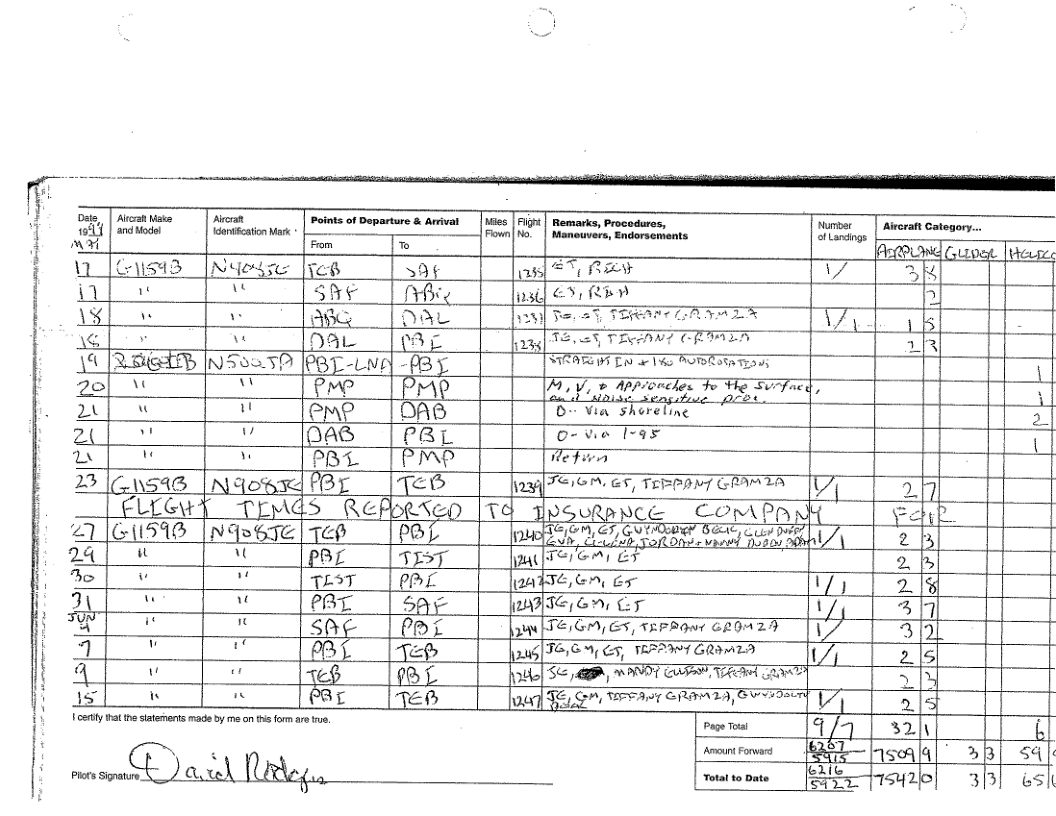 Date 1997 Aircraft Make and Model Aircraft Identification Mark Points of Departure & Arrival Miles Flown Flight No. Remarks, Procedures, Maneuvers, Endorsements Number of Landings Aircraft Category...
From To AIRPLANE GLIDER HELICO
17 G1159B N908JE TEB SAF 1235 ET, RICH 1/ 3 8
17 " " SAF 1236 2
18 " " ABQ DAL JE, ET, TIFFANY GRAMZA 1/1 1 5
18 " " DAL PBI 1238 JE, ET, TIFFANY GRAMZA 2 3
19 PBI-LNA -PBI STRAIGHT IN + 180 AUTOROTATIONS 1
20 " " PMP PMP M, V, + Approaches to the surface, and Noise sensitive proc. 1
21 " " PMP DAB D-- via shoreline 2
21 " " DAB PBI D- via I-95 1
21 " " PBI PMP Return
23 G1159B N908JE PBI TEB 1239 JE, GM, ET, TIFFANY GRAMZA 1/1 2 7
FLIGHT TIMES REPORTED TO INSURANCE COMPANY FOR
27 G1159B N908JE TEB PBI 1240 JE, GM, ET, 1/1 2 3
29 " " PBI TIST 1241 JE, GM, ET 2 3
30 " " TIST PBI 1242 JE, GM, ET 1/1 2 8
31 " " PBI SAF 1243 JE, GM, ET 1/1 3 7
JUN 4 " " SAF PBI 1244 JE, GM, ET, TIFFANY GRAMZA 1/ 3 2
7 " " PBI TEB 1245 JE, GM, ET, TIFFANY GRAMZA 1/1 2 5
9 " " TEB PBI 1246 JE, TIFFANY GRAMZA 2 3
15 " " PBI TEB 1247 JE, GM, TIFFANY GRAMZA, 1/1 2 5
I certify that the statements made by me on this form are true.
Page Total 9/7 32 1 6
Amount Forward 6207 5915 7509 9 3 3 59
Total to Date 6216 5922 7542 0 3 3 65
Pilot's Signature David Rodgers